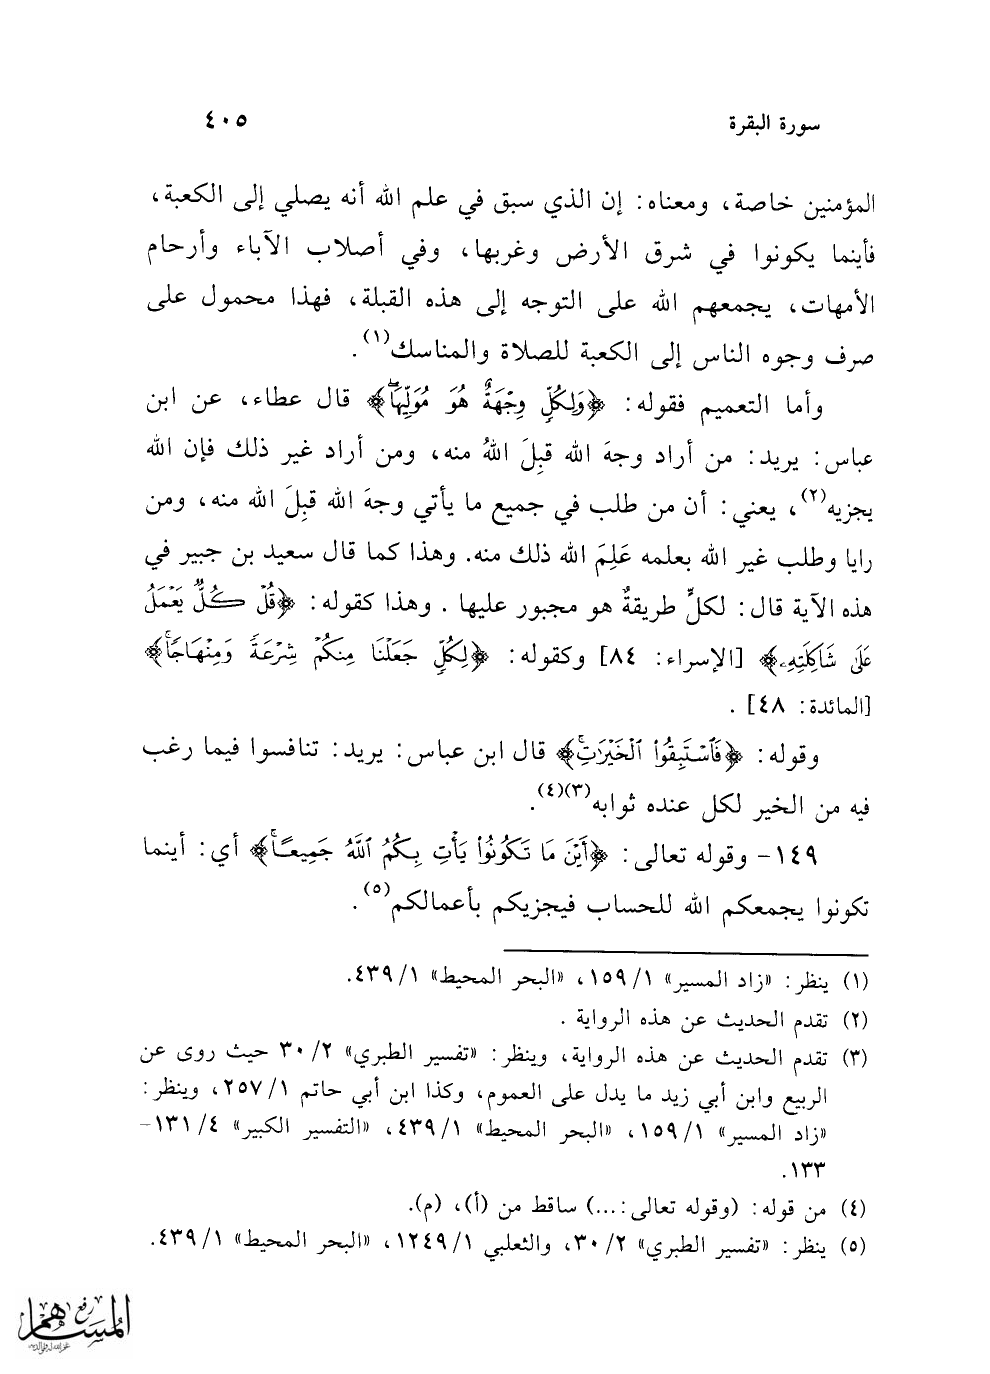 سورة البقرة ٤٠٥
المؤمنين خاصة، ومعناه: إن الذي سبق في علم الله أنه يصلي إلى الكعبة،
فأينما يكونوا في شرق الأرض وغربها، وفي أصلاب الآباء وأرحام
الأمهات، يجمعهم الله على التوجه إلى هذه القبلة، فهذا محمول على
صرف وجوه الناس إلى الكعبة للصلاة والمناسك(١).
وأما التعميم فقوله: ﴿وَلِكُلٍّ وِجْهَةٌ هُوَ مُوَلِّيهَاۖ﴾ قال عطاء، عن ابن
عباس: يريد: من أراد وجهَ الله قبِلَ اللهُ منه، ومن أراد غير ذلك فإن الله
يجزيه(٢)، يعني: أن من طلب في جميع ما يأتي وجهَ الله قبِلَ الله منه، ومن
رايا وطلب غير الله بعلمه عَلِمَ الله ذلك منه. وهذا كما قال سعيد بن جبير في
هذه الآية قال: لكلٍّ طريقةٌ هو مجبور عليها . وهذا كقوله: ﴿قُلۡ كُلٌّ يَعۡمَلُ
عَلَىٰ شَاكِلَتِهِۦ﴾ [الإسراء: ٨٤] وكقوله: ﴿لِكُلٍّ جَعَلۡنَا مِنكُمۡ شِرۡعَةً وَمِنۡهَاجًاۚ﴾
[المائدة: ٤٨] .
وقوله: ﴿فَٱسۡتَبِقُواْ ٱلۡخَيۡرَٰتِۚ﴾ قال ابن عباس: يريد: تنافسوا فيما رغب
فيه من الخير لكل عنده ثوابه(٣)(٤).
١٤٩- وقوله تعالى: ﴿أَيۡنَ مَا تَكُونُواْ يَأۡتِ بِكُمُ ٱللَّهُ جَمِيعًاۚ﴾ أي: أينما
تكونوا يجمعكم الله للحساب فيجزيكم بأعمالكم(٥).
(١) ينظر: «زاد المسير» ١/ ١٥٩، «البحر المحيط» ١/ ٤٣٩.
(٢) تقدم الحديث عن هذه الرواية .
(٣) تقدم الحديث عن هذه الرواية، وينظر: «تفسير الطبري» ٢/ ٣٠ حيث روى عن
الربيع وابن أبي زيد ما يدل على العموم، وكذا ابن أبي حاتم ١/ ٢٥٧، وينظر:
«زاد المسير» ١/ ١٥٩، «البحر المحيط» ١/ ٤٣٩، «التفسير الكبير» ٤/ ١٣١-
١٣٣.
(٤) من قوله: (وقوله تعالى:...) ساقط من (أ)، (م).
(٥) ينظر: «تفسير الطبري» ٢/ ٣٠، والثعلبي ١/ ١٢٤٩، «البحر المحيط» ١/ ٤٣٩.
رفع
المساهم